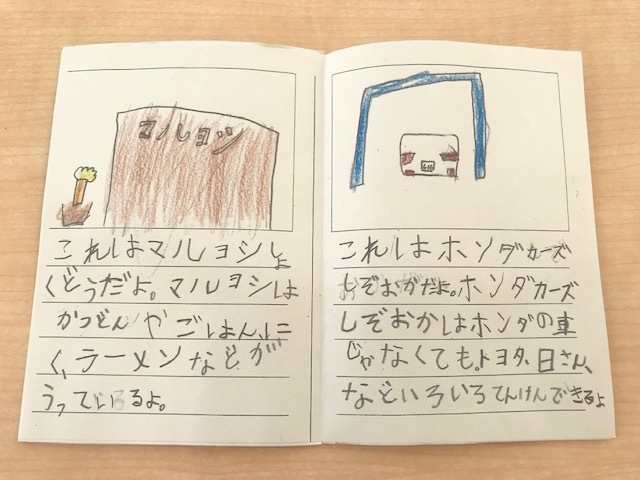 マルヨシ
これはマルヨシしょ
くどうだよ。マルヨシは
かつどんやごはん、に
く、ラーメンなどが
うっているよ。
これはホンダカーズ
しぞおかだよ。ホンダカーズ
しぞおかはホンダの車
じゃなくても。トヨタ、日さん、
などいろいろてんけんできるよ